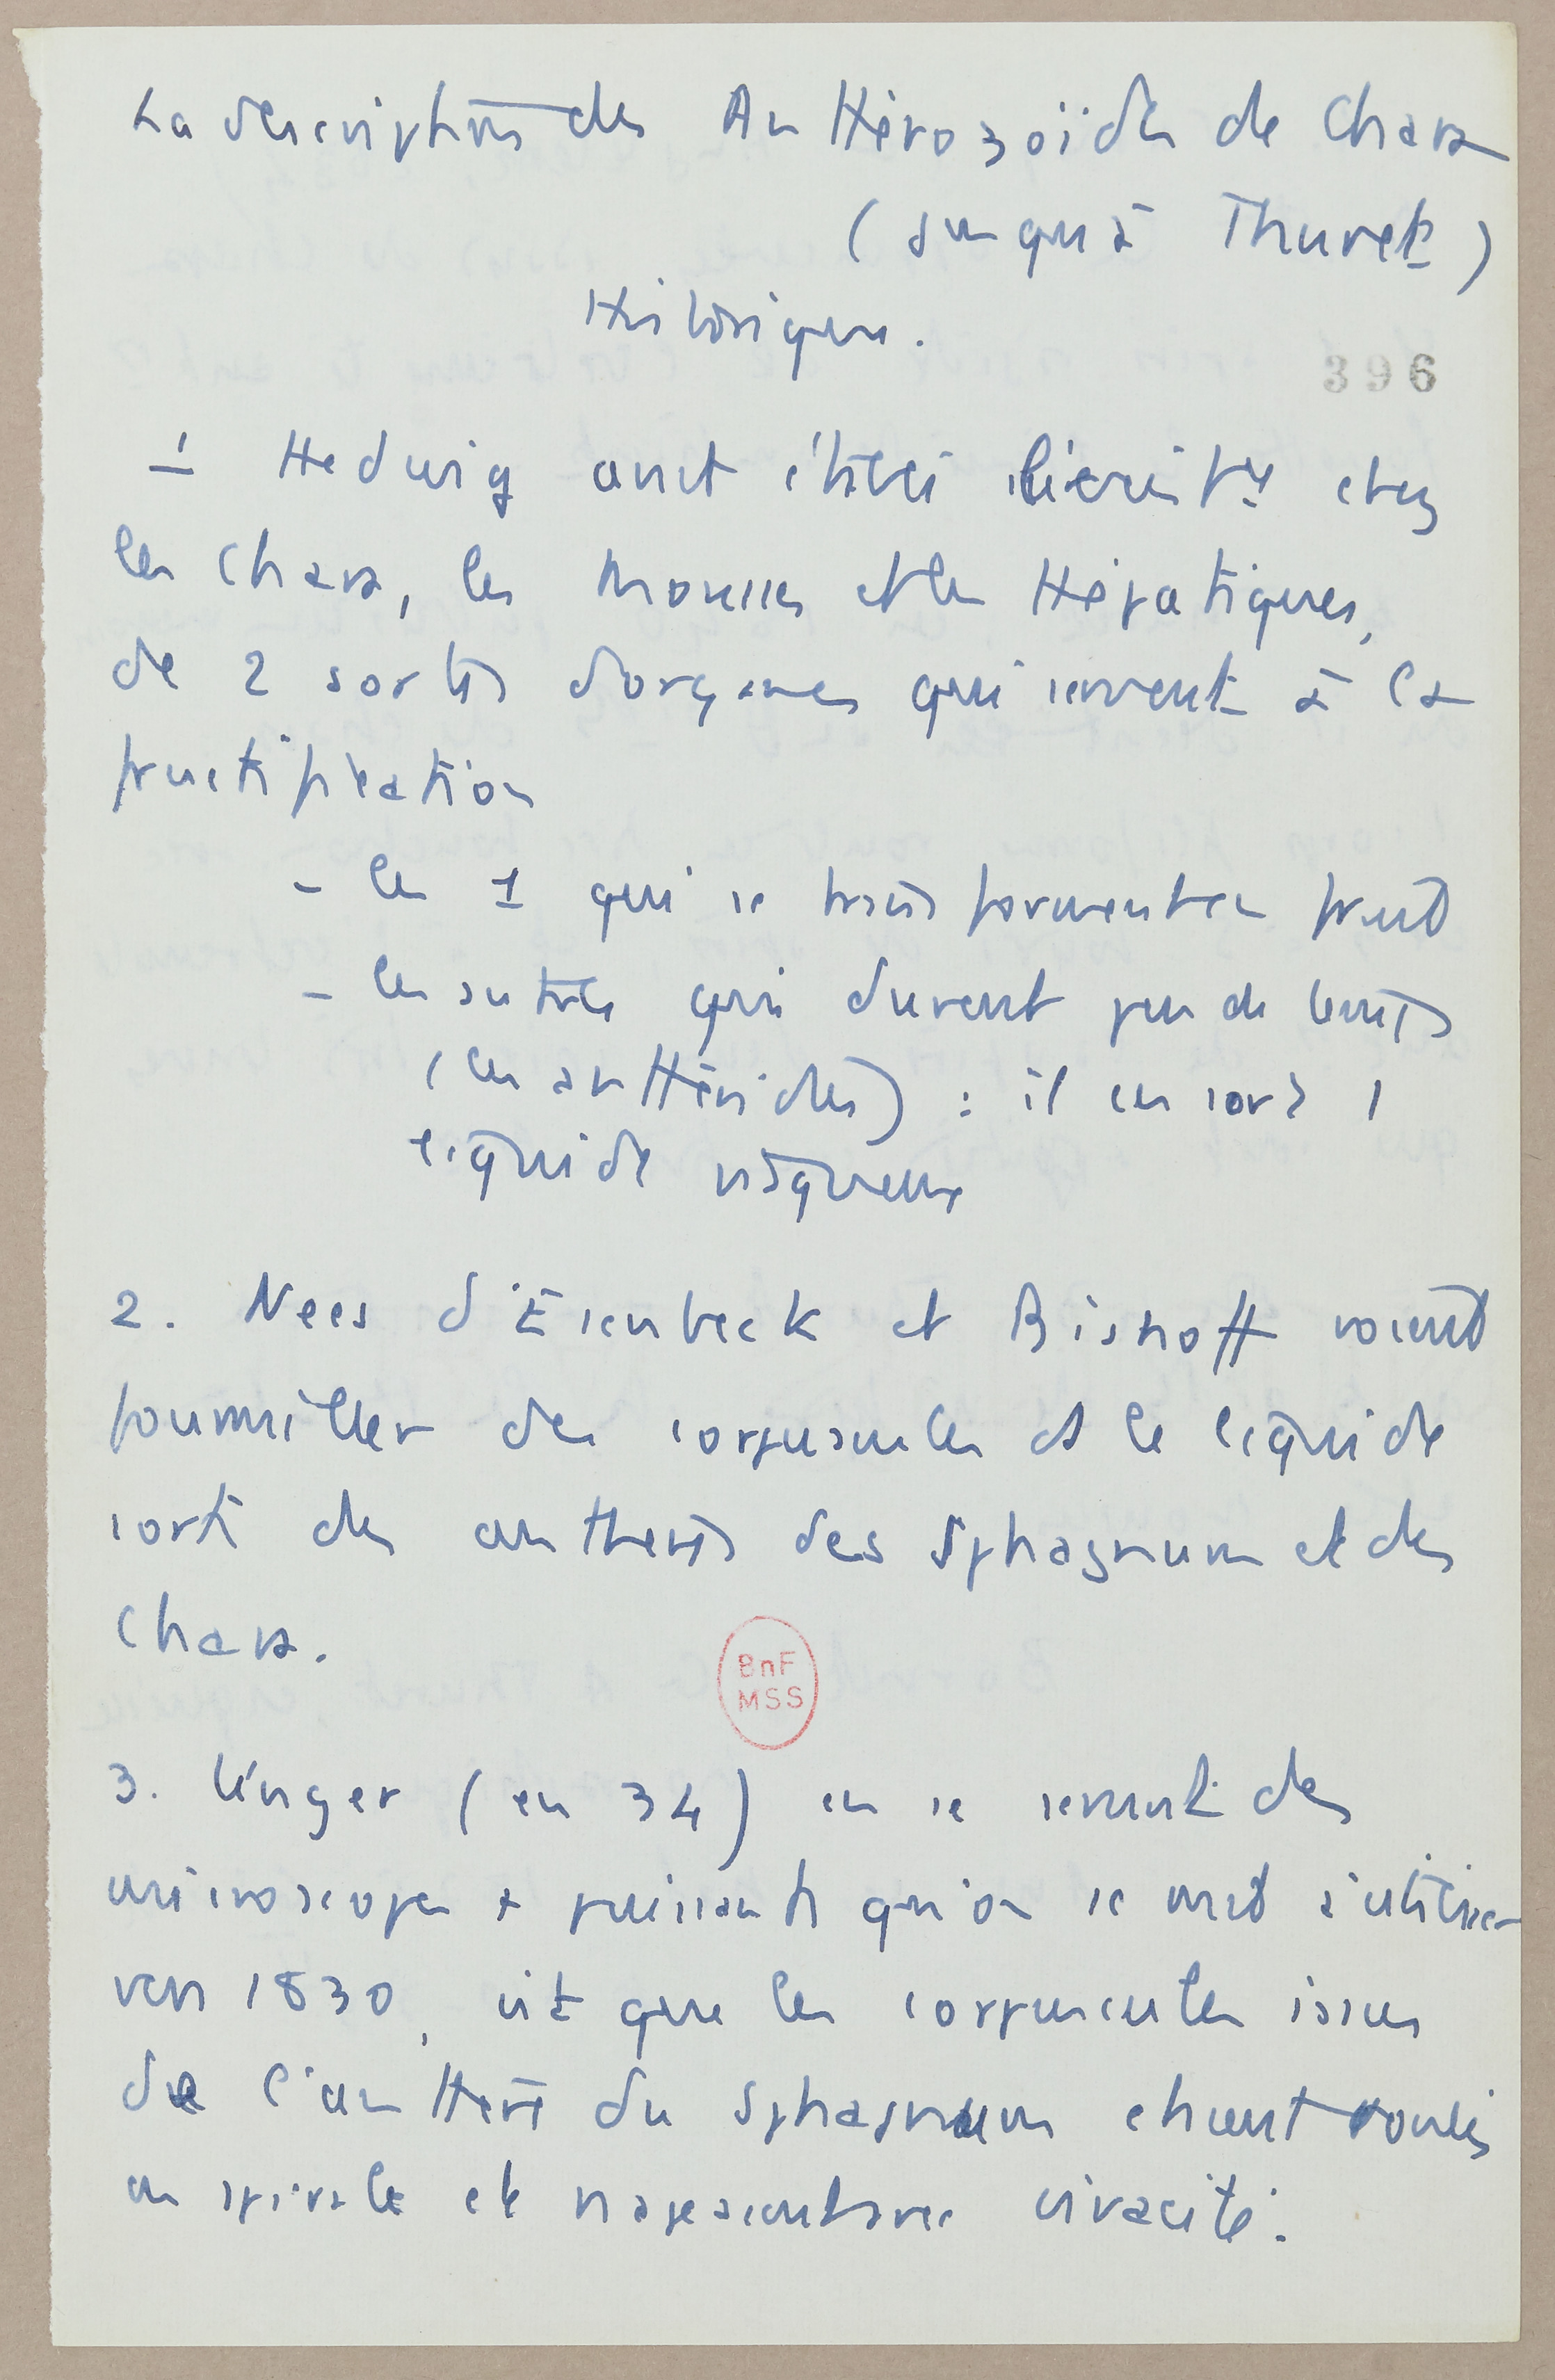 La description des Anthérozoïdes de Chara
(jusqu'à Thuret)
Historique.
396
1 Hedwig avait établi l'existce chez
les Chara, les Mousses et les Hépatiques,
de 2 sortes d'organes qui servent à la
fructification
- les 1 qui se transforment en fruit
- les autres qui durent peu de temps
(les anthéridies) : il en sort 1
liquide visqueux
2. Nees d'Esenbeck et Bishoff voient
fourmiller des corpuscules ds le liquide
sorti des anthères des Sphagnum et des
Chara.
BnF
MSS
3. Unger (en 34) en se servant des
microscopes + puissants qu'on se met à utiliser
vers 1830, vit que les corpuscules issus
de l'anthère du Sphagnum étaient roulés
en spirale et nageaient avec vivacité.